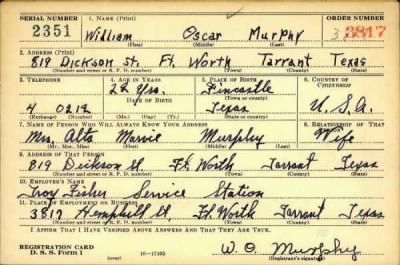 SERIAL NUMBER 1. NAME (Print) ORDER NUMBER
2351 William Oscar Murphy 3817
(First) (Middle) (Last)
2. ADDRESS (Print)
819 Dickson St. Ft. Worth Tarrant Texas
(Number and street or R. F. D. number) (Town) (County) (State)
3. TELEPHONE 4. AGE IN YEARS 5. PLACE OF BIRTH 6. COUNTRY OF CITIZENSHIP
Yrs. Fincastle
DATE OF BIRTH (Town or county)
4 0212 Texas U.S.A.
(Exchange) (Number) (Mo.) (Day) (Yr.) (State or country)
7. NAME OF PERSON WHO WILL ALWAYS KNOW YOUR ADDRESS 8. RELATIONSHIP OF THAT PERSON
Mrs. Alta Murphy Wife
(Mr., Mrs., Miss) (First) (Middle) (Last)
9. ADDRESS OF THAT PERSON
819 Dickson St. Ft. Worth Tarrant Texas
(Number and street or R. F. D. number) (Town) (County) (State)
10. EMPLOYER'S NAME
Troy Fisher Service Station
11. PLACE OF EMPLOYMENT OR BUSINESS
3817 Hemphill St. Ft. Worth Tarrant Texas
(Number and street or R. F. D. number) (Town) (County) (State)
I AFFIRM THAT I HAVE VERIFIED ABOVE ANSWERS AND THAT THEY ARE TRUE.
REGISTRATION CARD
D. S. S. Form 1 (over) 16—17105 W. O. Murphy
(Registrant's signature)